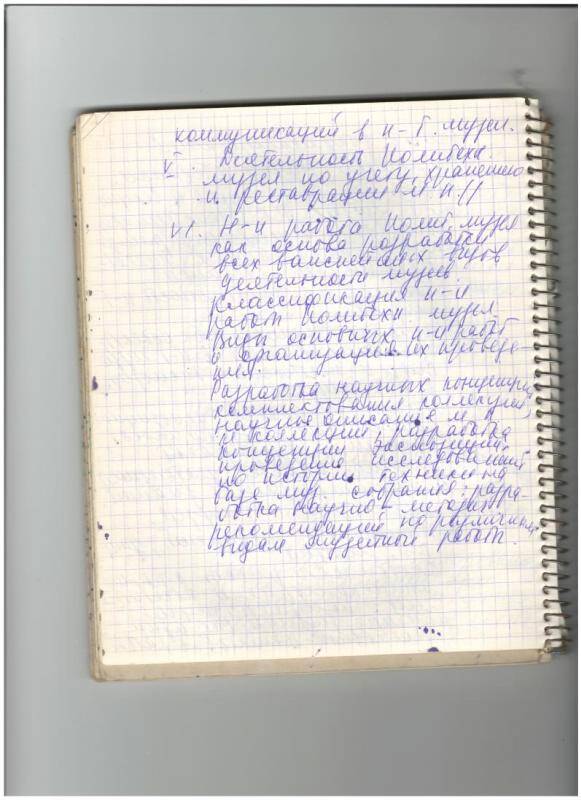 коммуникаций в н-т. музеи.
V. Деятельность Политехн.
музея по учету, хранению
и реставрации м. п.//
VI. Н-и работа Полит. музея
как основа разработки
всех важнейших видов
деятельности музея.
Классификация н-и
работ Политехн музея.
Виды основных н-и работ
и организация их проведе-
ния.
Разработка научных концепций
комплектования коллекций,
научное описание м. п
и коллекций, разработка
концепции экспозиций,
проведение исследований
по истории техники на
базе муз. собраний, разра-
ботка научно-методич.
рекомендаций по различным
видам музейных работ.